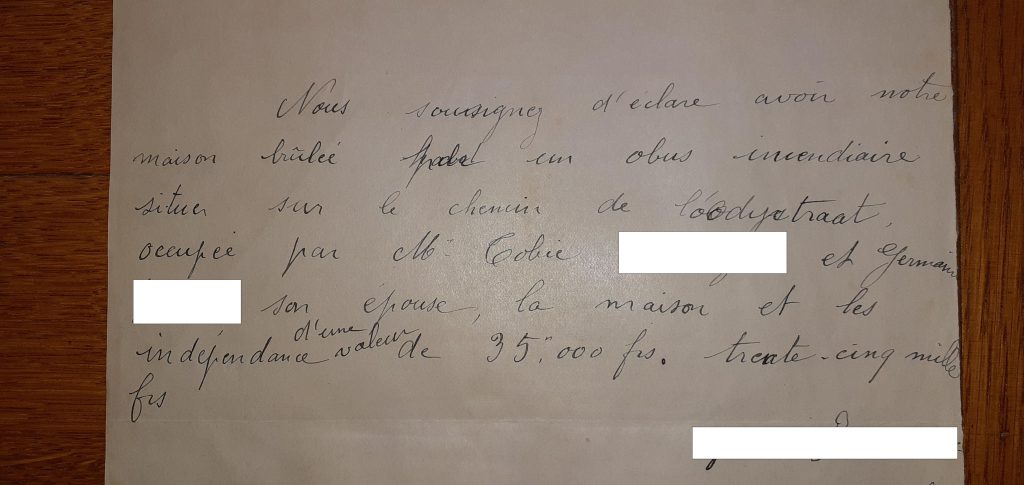 Nous soussigney d'éclare avoir notre
maison brûleé par un obus incendiaire
situer sur le chemin de
occupeé par Mr Tobie et Germaine
son épouse, la maison et les
indépendance d'une valeur de 35.000 frs. trente-cinq mille
frs